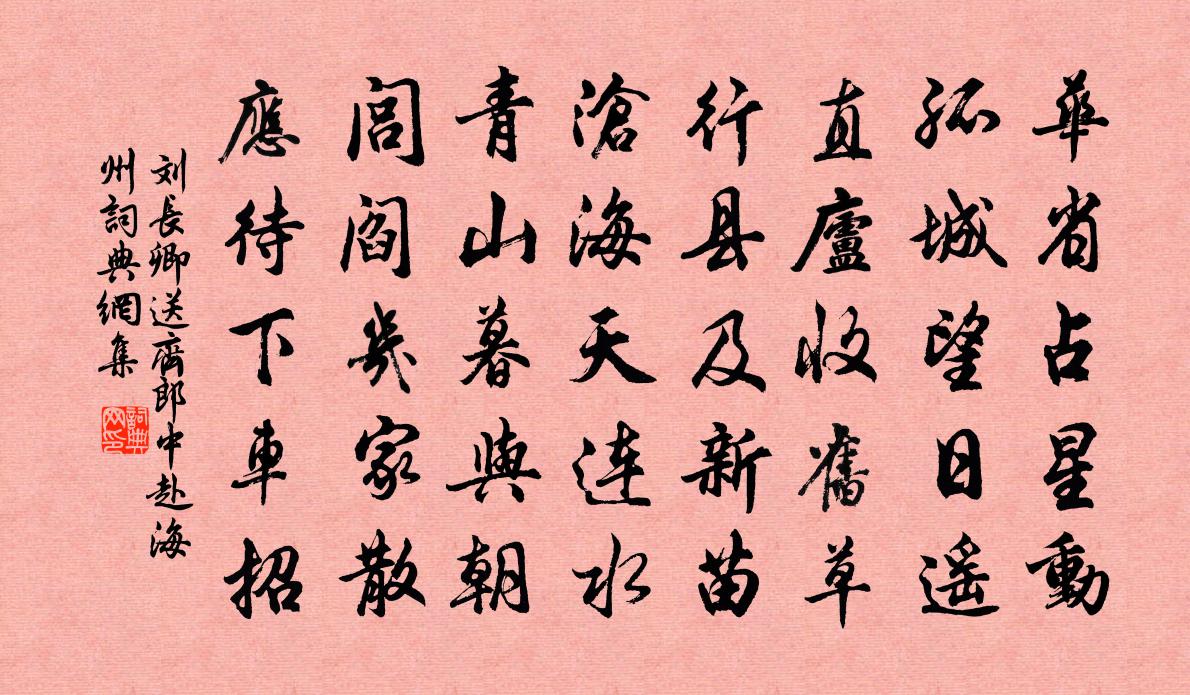 華省占星動
孤城望日遥
直廬收舊草
行县及新苗
滄海天连水
青山暮與朝
閭閻幾家散
應待下車招
刘長卿送齊郎中赴海
州詞典網集
詞典
网印